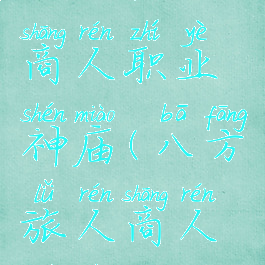 shāng rén zhí yè
商人职业
shén miào bā fāng
神庙(八方
lǚ rén shāng rén
旅人商人